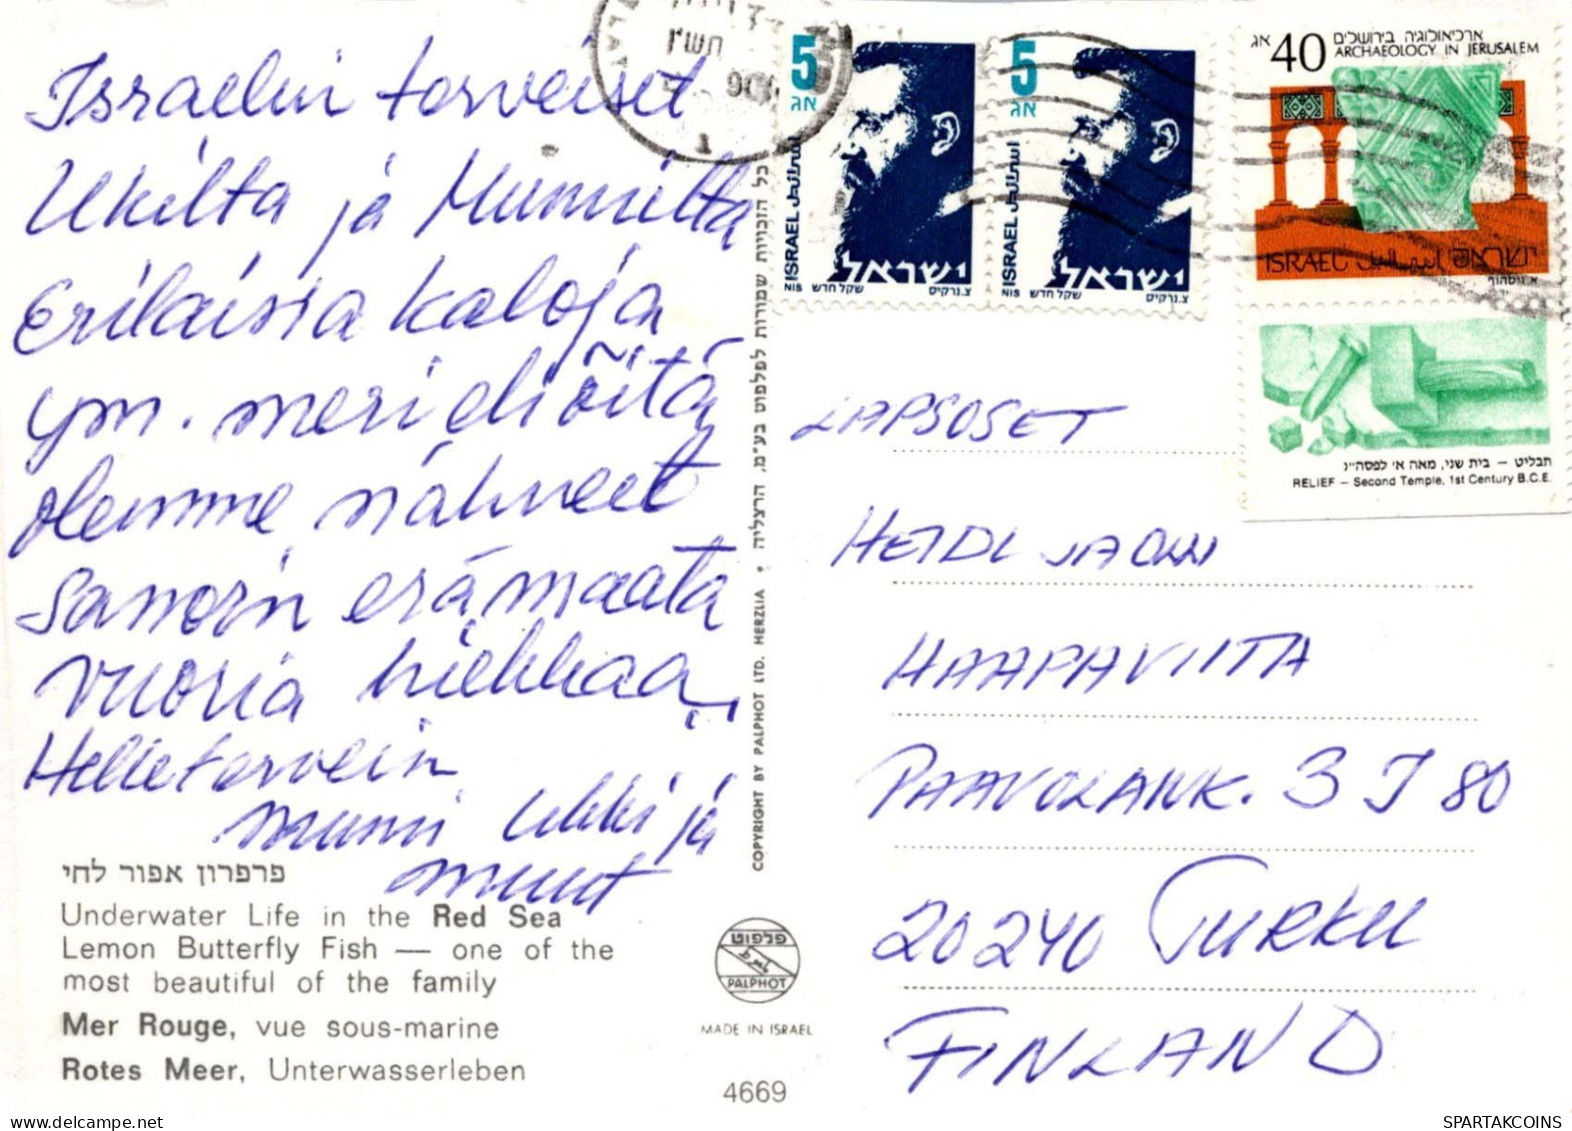 Israelin terveiset
Ukilta ja Mummilta
Erilaisia kaloja
ym. merieliöitä
olemme nähneet
Samoin erämaata
vuoria hiekkaa,
Helleterveisin
mummi Ukki ja
muut
פרפרון אפור לחי
Underwater Life in the Red Sea
Lemon Butterfly Fish — one of the
most beautiful of the family
Mer Rouge, vue sous-marine
Rotes Meer, Unterwasserleben
כל הזכויות שמורות לפלפוט בע״מ, הרצליה • COPYRIGHT BY PALPHOT LTD. HERZLIA
פלפוט
PALPHOT
MADE IN ISRAEL
4669
תש״ן
1
5
אג
ISRAEL اسرائيل
ישראל
NIS שקל חדש צ.נרקיס
5
אג
ISRAEL اسرائيل
ישראל
NIS שקל חדש צ.נרקיס
40 אג
ארכיאולוגיה בירושלים
ARCHAEOLOGY IN JERUSALEM
ISRAEL اسرائيل ישראל
תבליט – בית שני, מאה א׳ לפסה״נ
RELIEF – Second Temple, 1st Century B.C.E.
LAPSOSET
HEIDI JA
HAAPAVIITA
PAAVOLANK. 3 I 80
20240 TURKU
FINLAND
SPARTAKCOINS
delcampe.net